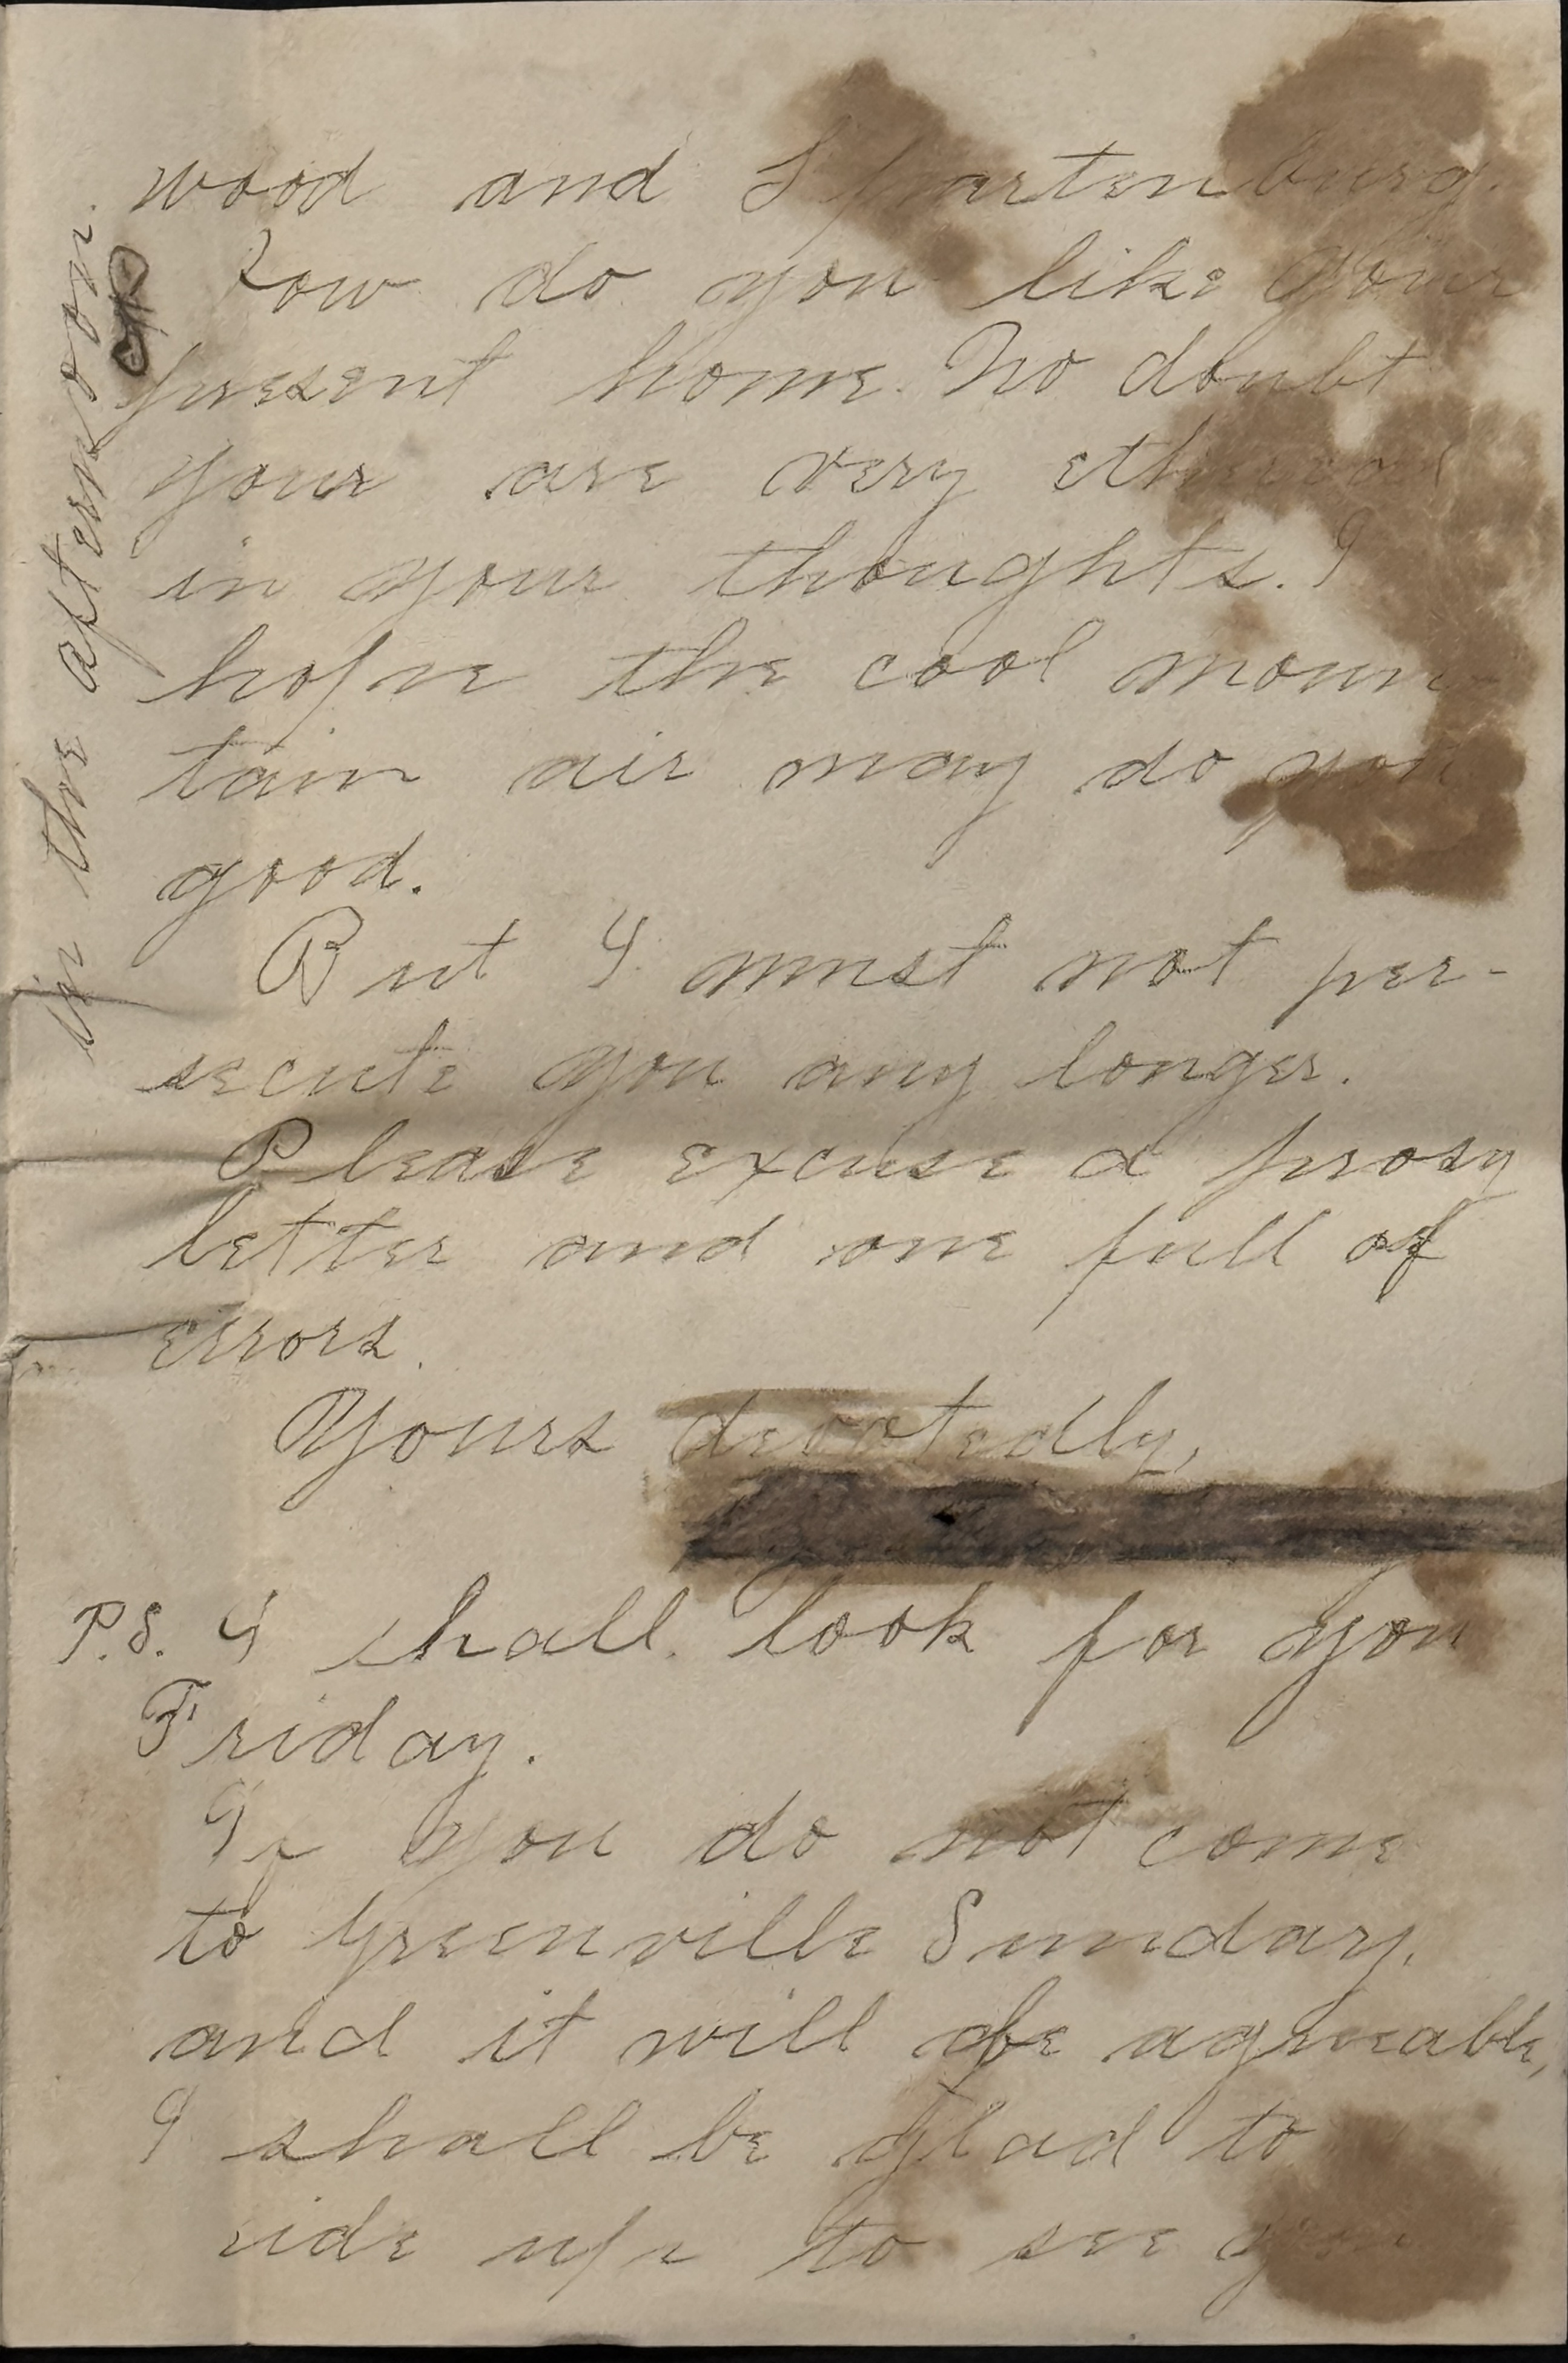 wood and Spartenburg.
How do you like your
present home. No doubt
your are very ethereal
in your thoughts. I
hope the cool moun-
tain air may do you
good.
But I must not per-
secute you any longer.
Please excuse a prosy
letter and one full of
errors.
Yours devotedly,
P.S. I shall look for you
Friday.
If you do not come
to Greenville Sunday,
and it will be agreeable,
I shall be glad to
ride up to see you
in the afternoon.